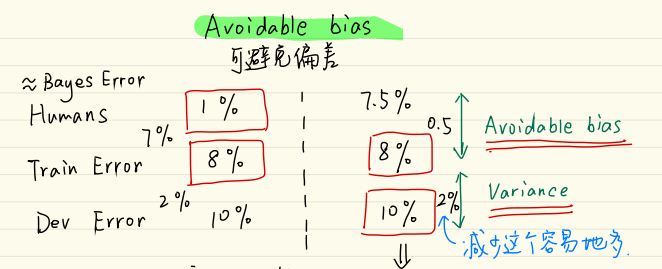 Avoidable bias
可避免偏差
≈ Bayes Error
Humans 1% 7.5%
7% 0.5 Avoidable bias
Train Error 8% 8%
2% 2% Variance
Dev Error 10% 10%
减少这个容易地多.